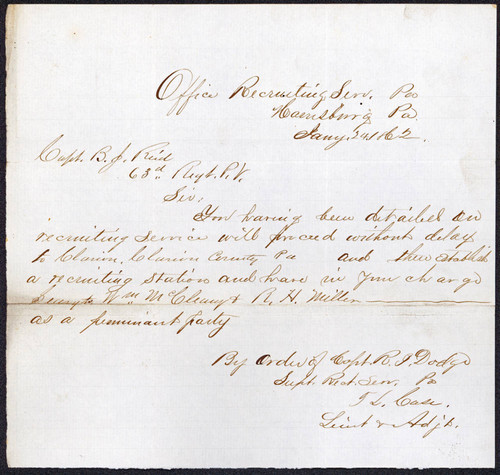 Office Recruiting Serv. Pa
Harrisburg Pa
Jany. 2d 1862.
Capt. B. J. Reid
63rd Regt. P. V.
Sir;
You having been detailed on
recruiting service will proceed without delay
to Clarion, Clarion County Pa and there establish
a recruiting station and have in your charge
Sergts Wm McCleary & R. H. Miller
as a permanant party
By Order of Capt. R. I. Dodge
Supt. Rect. Serv. Pa
T. L. Case.
Lieut & Adjt.